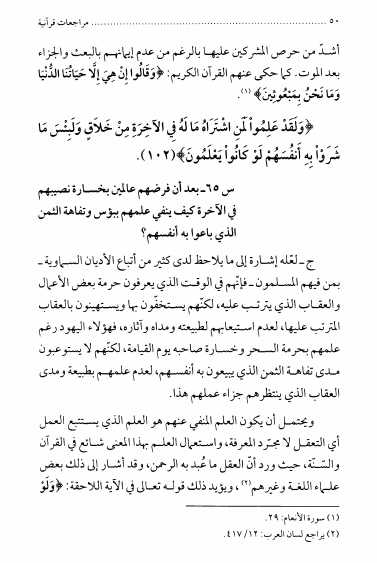 ٥٠ ........................................................ مراجعات قرآنية
أشدّ من حرص المشركين عليها بالرغم من عدم إيمانهم بالبعث والجزاء
بعد الموت. كما حكى عنهم القرآن الكريم: ﴿وَقَالُوا إِنْ هِيَ إِلَّا حَيَاتُنَا الدُّنْيَا
وَمَا نَحْنُ بِمَبْعُوثِينَ﴾ (١).
﴿وَلَقَدْ عَلِمُواْ لَمَنِ اشْتَرَاهُ مَا لَهُ فِي الآخِرَةِ مِنْ خَلاَقٍ وَلَبِئْسَ مَا
شَرَوْاْ بِهِ أَنفُسَهُمْ لَوْ كَانُواْ يَعْلَمُونَ﴾(١٠٢).
س ٦٥- بعد أن فرضهم عالمين بخسارة نصيبهم
في الآخرة كيف ينفي علمهم ببؤس وتفاهة الثمن
الذي باعوا به أنفسهم؟
ج - لعلّه إشارة إلى ما يلاحظ لدى كثير من أتباع الأديان السماوية -
بمن فيهم المسلمون - فإنّهم في الوقت الذي يعرفون حرمة بعض الأعمال
والعقاب الذي يترتب عليه، لكنّهم يستخفّون بها ويستهينون بالعقاب
المترتب عليها، لعدم استيعابهم لطبيعته ومداه وآثاره، فهؤلاء اليهود رغم
علمهم بحرمة السحر وخسارة صاحبه يوم القيامة، لكنّهم لا يستوعبون
مدى تفاهة الثمن الذي يبيعون به أنفسهم، لعدم علمهم بطبيعة ومدى
العقاب الذي ينتظرهم جزاء عملهم هذا.
ويحتمل أن يكون العلم المنفي عنهم هو العلم الذي يستتبع العمل
أي التعقل لا مجرّد المعرفة، واستعمال العلم بهذا المعنى شائع في القرآن
والسّنّة، حيث ورد أنّ العقل ما عُبد به الرحمن، وقد أشار إلى ذلك بعض
علماء اللغة وغيرهم(٢)، ويؤيد ذلك قوله تعالى في الآية اللاحقة: ﴿وَلَوْ
(١) سورة الأنعام: ٢٩.
(٢) يراجع لسان العرب: ١٢/ ٤١٧.